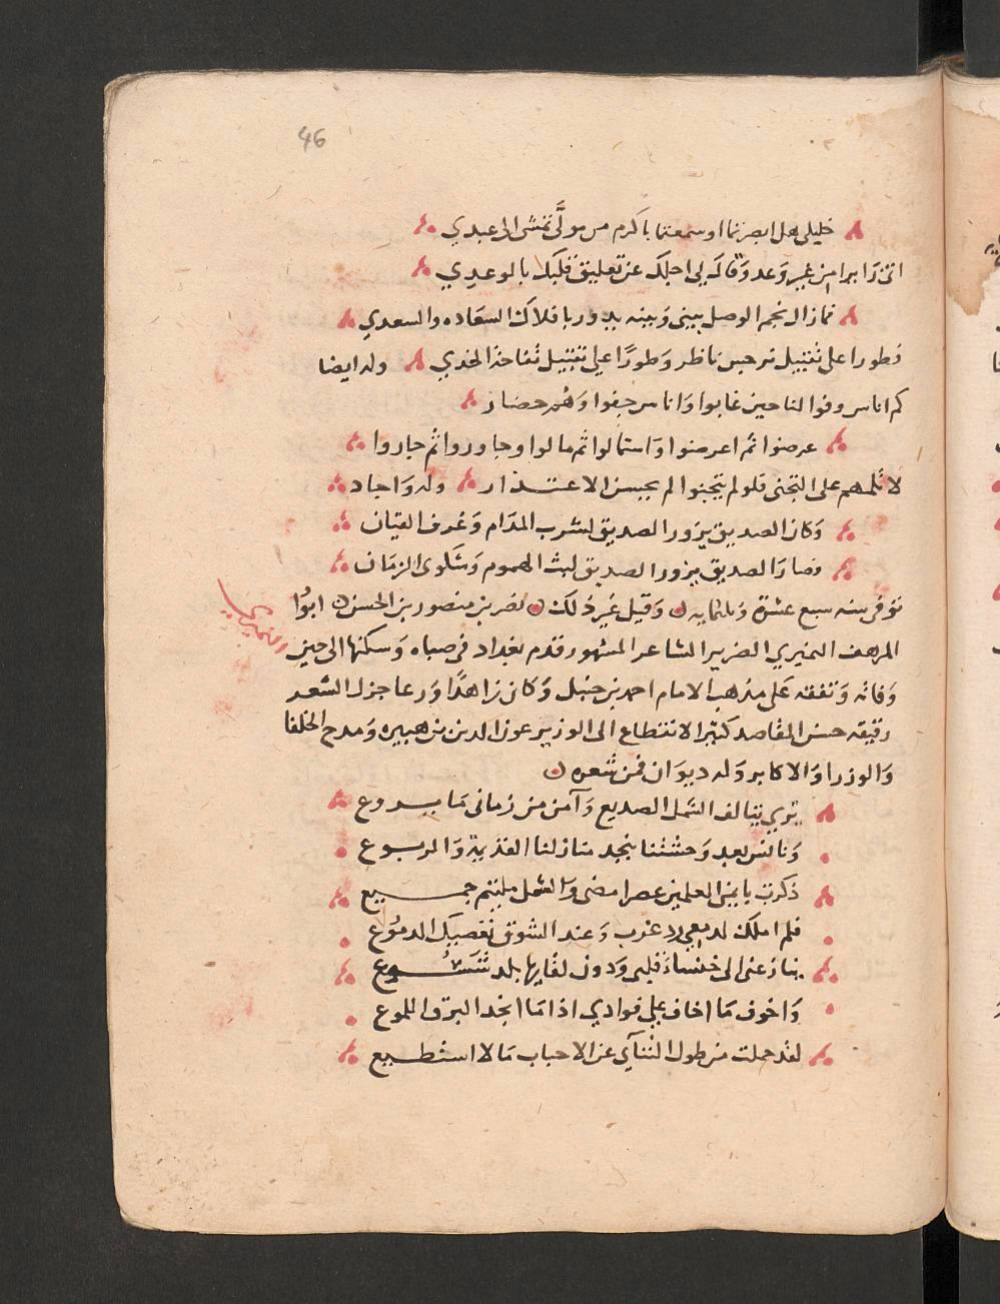 46
خليلي هل ابصرتما او سمعتما باكرم من مولًى تمشى الى عبدي
اتى زايرا من غير وعد وقال لي اجلك عن تعليق قلبك بالوعدي
فمازال نجم الوصل بيني وبينه يدور بافلاك السعاده والسعدي
فطورا على تقبيل نرجس ناظر وطورًا على تقبيل تفاحة الخدي وله ايضا
كم اناس وفوا لنا حين غابوا واناس جفوا وهم حضار
عرضوا ثم اعرضوا واستمالوا ثم مالوا وجاوروا ثم جاروا
لا تلمهم على التجنى فلو لم يتجنوا لم يحسن الاعتذار وله واجاد
وكان الصديق يزور الصديق لشرب المدام وعزف القيان
فصار الصديق يزور الصديق لبث الهموم وشكوى الزمان
توفى سنه سبع عشرة وثلثمايه وقيل غير ذلك نصر بن منصور بن الحسن ابوُا
النميري
المرهف النميري الضرير الشاعر المشهور قدم بغداد في صباه وسكنها الى حين
وفاته وتفقه على مذهب الامام احمد بن حنبل وكان زاهدًا ورعا جزل الشعر
رقيقه حسن المقاصد كثير الانقطاع الى الوزير عون الدين بن هبيره ومدح الخلفا
والوزرا والاكابر وله ديوان فمن شعره
ترى يتالف الشمل الصديع وآمن من زمانى ما يروع
وتانس بعد وحشتنا بنجد منازلنا القديمة والربوع
ذكرت بايمن العلمين عصرا مضى والشمل ملتئم جميع
فلم املك لدمعي رد غرب وعند الشوق تعصيك الدموُع
ينازعنى الى خنساءَ قلبى ودون لقايها بلد شَسُوع
واخوف ما اخاف على فوادي اذا ما انجد البرق اللموع
لقد حملت من طول التنآي عن الاحباب ما لا استطيع